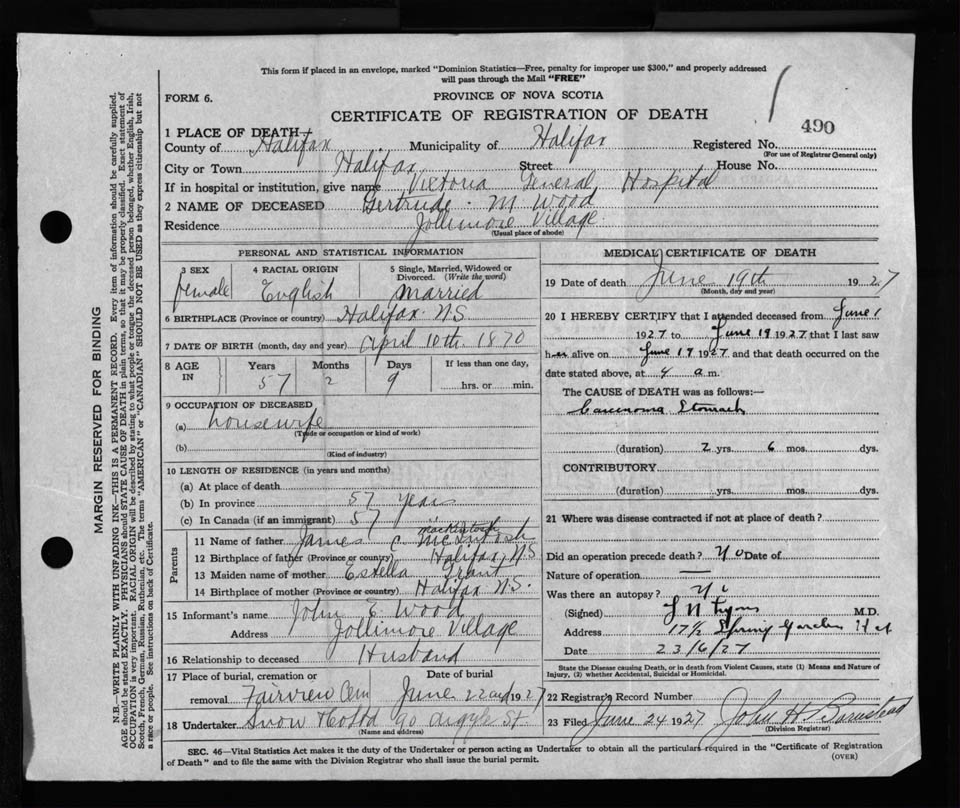 This form if placed in an envelope, marked "Dominion Statistics—Free, penalty for improper use $300," and properly addressed
will pass through the Mail "FREE"
FORM 6.
PROVINCE OF NOVA SCOTIA
CERTIFICATE OF REGISTRATION OF DEATH
490
1 PLACE OF DEATH
County of Halifax Municipality of Halifax Registered No.
(For use of Registrar General only)
City or Town Halifax Street House No.
If in hospital or institution, give name Victoria General Hospital
2 NAME OF DECEASED Gertrude M Wood
Residence Jollimore Village
(Usual place of abode)
PERSONAL AND STATISTICAL INFORMATION
3 SEX 4 RACIAL ORIGIN 5 Single, Married, Widowed or
Divorced. (Write the word)
female English married
6 BIRTHPLACE (Province or country) Halifax N.S.
7 DATE OF BIRTH (month, day and year) April 10th 1870
8 AGE IN Years Months Days If less than one day,
57 2 9 hrs. or min.
9 OCCUPATION OF DECEASED
(a) housewife
(Trade or occupation or kind of work)
(b)
(Kind of industry)
10 LENGTH OF RESIDENCE (in years and months)
(a) At place of death
(b) In province 57 years
(c) In Canada (if an immigrant) 57
Parents
Mackintosh
11 Name of father James C McIntosh
12 Birthplace of father (Province or country) Halifax, N.S
13 Maiden name of mother Estella Grant
14 Birthplace of mother (Province or country) Halifax N.S.
15 Informant's name John E. Wood
Address Jollimore Village
16 Relationship to deceased Husband
17 Place of burial, cremation or removal Date of burial
Fairview Cem June 22nd 1927
18 Undertaker Snow & Co Ltd 90 Argyle St
(Name and address)
MEDICAL CERTIFICATE OF DEATH
19 Date of death June 19th 1927
(Month, day and year)
20 I HEREBY CERTIFY that I attended deceased from June 1
1927 to June 19 1927 that I saw
her alive on June 19 1927 and that death occurred on the
date stated above, at 4 a.m.
The CAUSE of DEATH was as follows:
Carcinoma Stomach
(duration) 2 yrs. 6 mos. dys.
CONTRIBUTORY
(duration) yrs. mos. dys.
21 Where was disease contracted if not at place of death?
Did an operation precede death? No Date of
Nature of operation —
Was there an autopsy? No
(Signed) M.D.
Address 17½ Spring Garden
Date 23/6/27
State the Disease causing Death, or in death from Violent Causes, state (1) Means and Nature of
Injury, (2) whether Accidental, Suicidal or Homicidal.
22 Registrar's Record Number
23 Filed June 24 1927 John H Barnstead
(Division Registrar)
SEC. 46—Vital Statistics Act makes it the duty of the Undertaker or person acting as Undertaker to obtain all the particulars required in the "Certificate of Registration
of Death" and to file the same with the Division Registrar who shall issue the burial permit.
(OVER)
MARGIN RESERVED FOR BINDING
N.B.—WRITE PLAINLY WITH UNFADING INK—THIS IS A PERMANENT RECORD. Every item of information should be carefully supplied.
AGE should be stated EXACTLY. PHYSICIANS should STATE CAUSE OF DEATH in plain terms, so that it may be properly classified. Exact statement of
OCCUPATION is very important. RACIAL ORIGIN will be described by stating to what people or tongue the deceased person belonged, whether English, Irish,
Scotch, French German, Russian, Ruthenian, etc. The terms "AMERICAN" or "CANADIAN" SHOULD NOT BE USED as they express citizenship but not
a race or people. See instructions on back of Certificate.